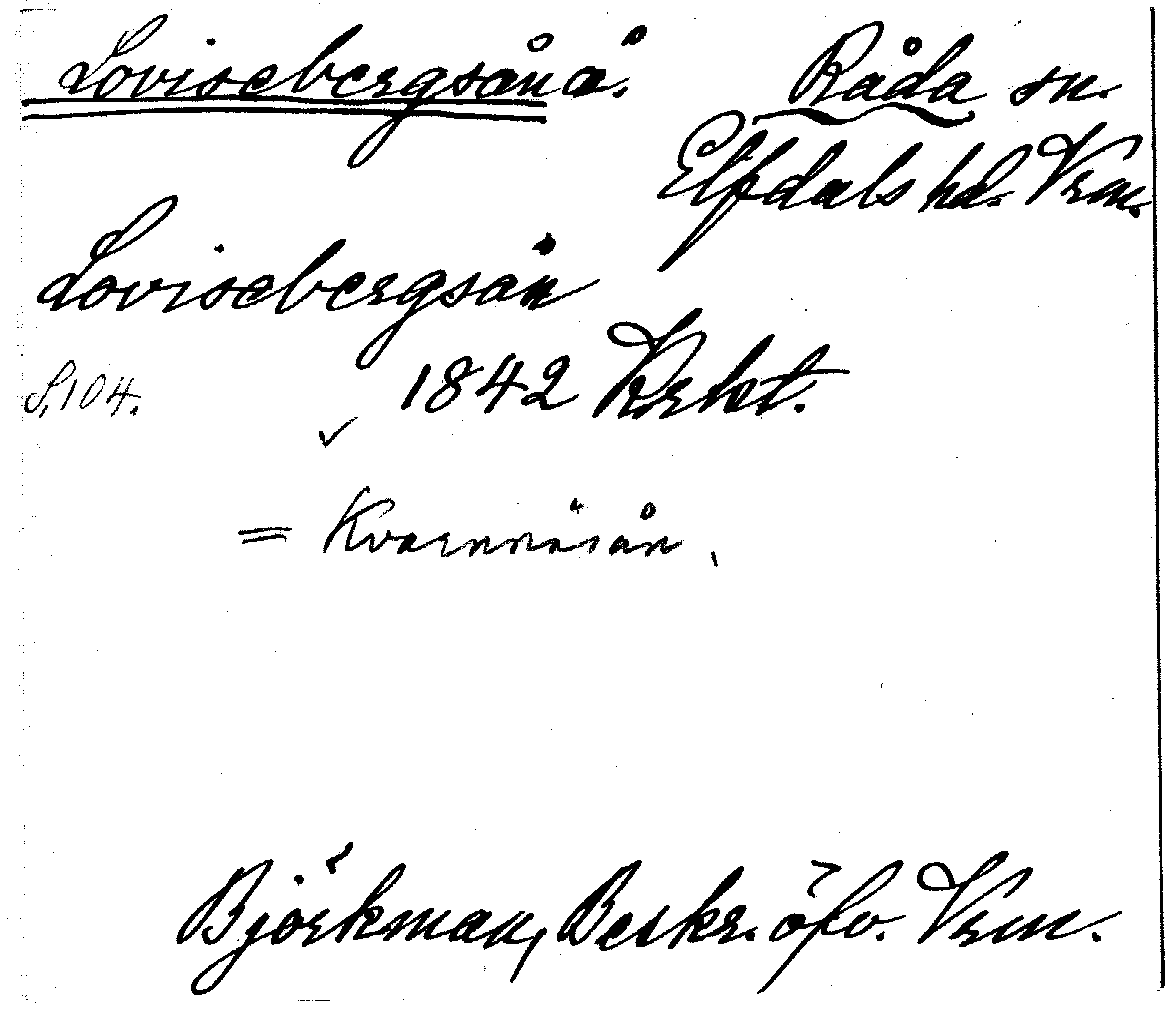 Lovisebergsån å. Råda sn.
Elfdals hd. Vrm.
Lovisebergsån
S. 104. 1842 Krkt.
= Kvarnnäsån.
Björkman, Beskr. öfv. Vrm.